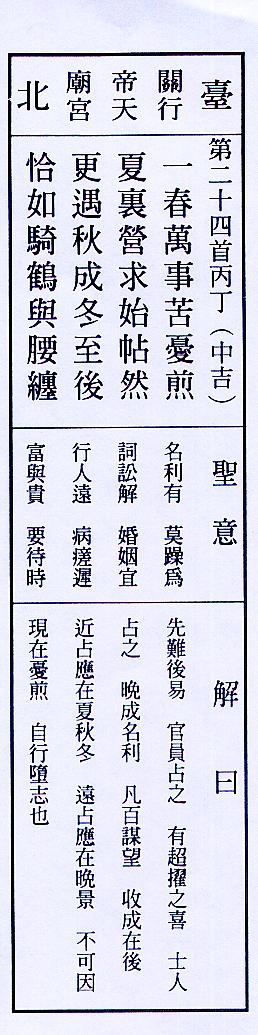 臺北
關帝廟
行天宮
第二十四首丙丁（中吉）
一春萬事苦憂煎
夏裏營求始帖然
更遇秋成冬至後
恰如騎鶴與腰纏
聖意
名利有 莫躁為
詞訟解 婚姻宜
行人遠 病瘥遲
富與貴 要待時
解曰
先難後易 官員占之 有超擢之喜 士人
占之 晚成名利 凡百謀望 收成在後
近占應在夏秋冬 遠占應在晚景 不可因
現在憂煎 自行墮志也